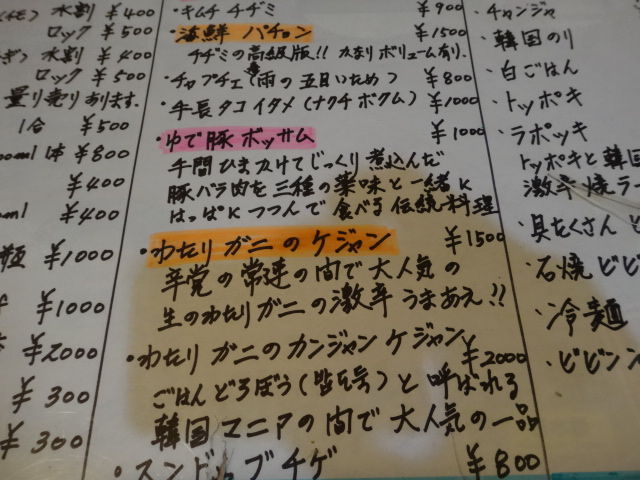 水割 ¥400
ロック ¥500
水割 ¥400
ロック ¥500
量り売りあります.
1合 ¥500
ml 1本 ¥800
¥400
ml ¥400
瓶 ¥1000
¥1000
¥2000
¥300
¥300
・キムチ チヂミ ¥900
・海鮮 パチョン ¥1500
チヂミの高級版!! かなりボリューム有り.
・チャプチェ(雨の五目いため) ¥800
・手長タコイタメ(ナクチボクム) ¥1000
・ゆで豚 ボッサム ¥1000
手間ひまかけてじっくり煮込んだ
豚バラ肉を三種の薬味と一緒に
はっぱにつつんで食べる伝統料理
・わたりガニのケジャン ¥1500
辛党の常連の間で大人気の
生のわたりガニの激辛うまあえ!!
・わたりガニのカンジャンケジャン ¥2000
ごはんどろぼう()と呼ばれる
韓国マニアの間で大人気の一品
・スンドゥブチゲ ¥800
・チャンジャ
・韓国のり
・白ごはん
・トッポキ
・ラポッキ
トッポキと韓国
激辛焼ラ
・具たくさん
・石焼ビビ
・冷麺
・ビビン